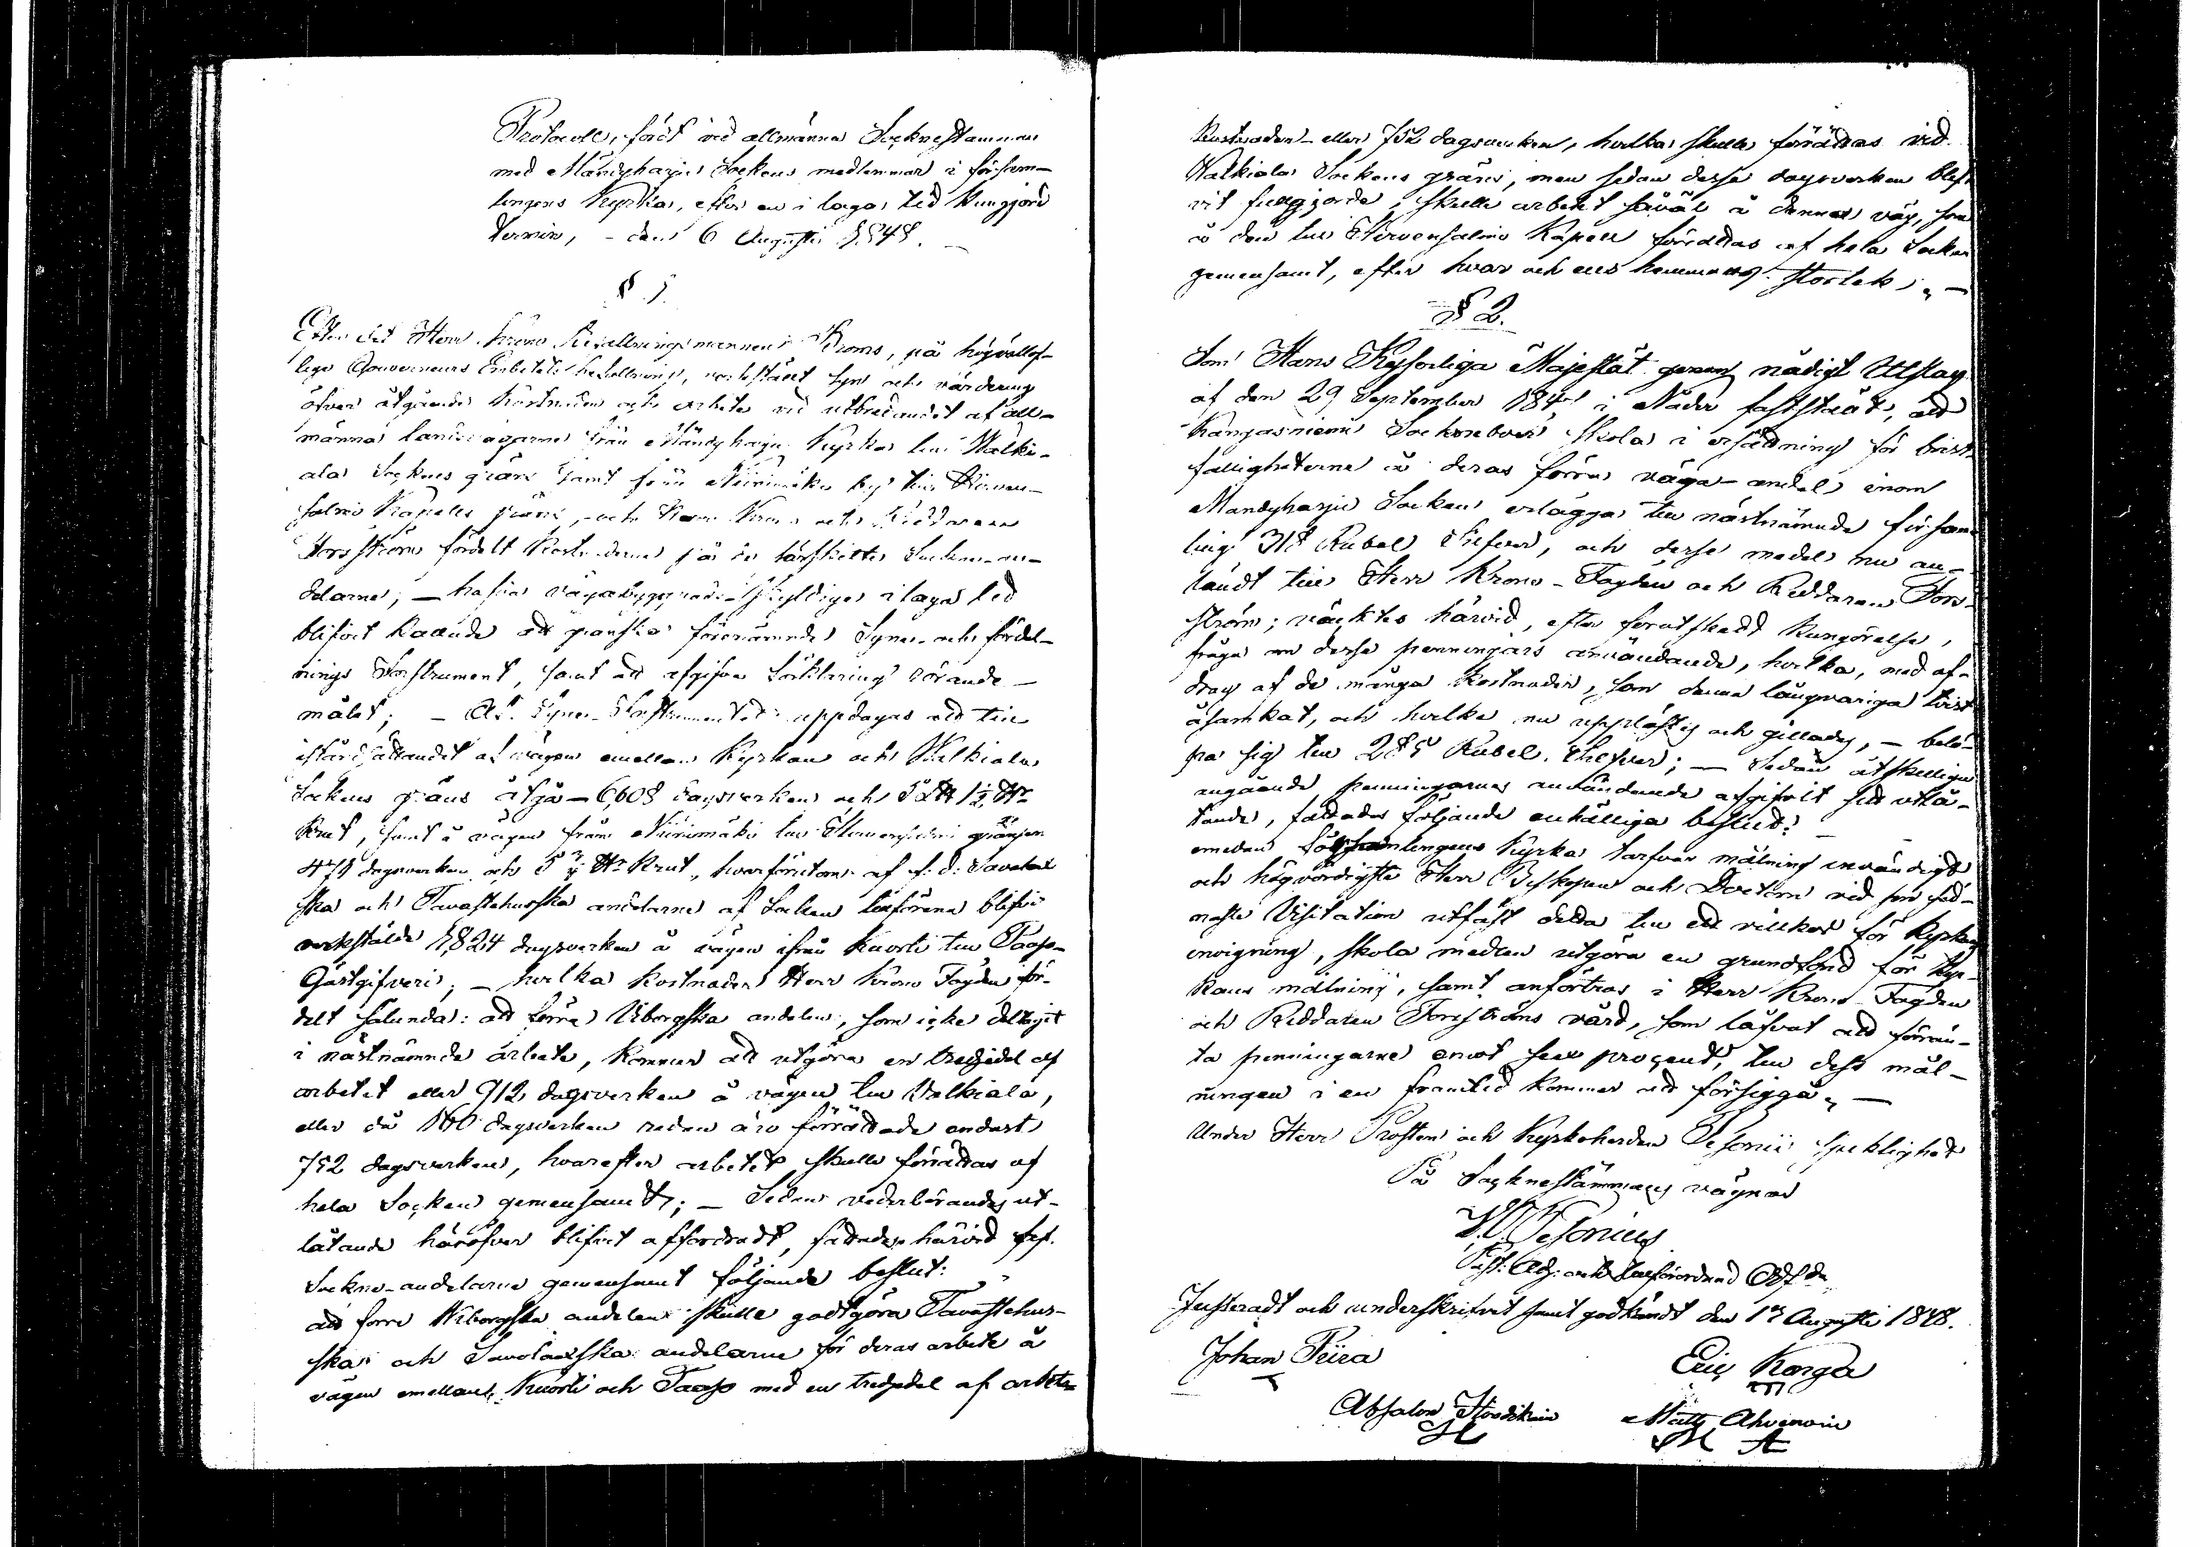 Protocoll, fördt vid allmänna Socknestämman
med Mändyharju Sockens medlemmar i försam-
lingens Kyrka, efter en i laga tid kungjord
termin, - den 6 Augusti 1848. -
§ 1.
Efter det Herr Krono Befallningsmannen Kroms, på högvällof-
lige Gouverneurs Embetets befallning, verkstält syn och värdering
öfver åtgående kostnaden och arbete vid utbredandet af all-
männa landsvägarne från Mändyharju Kyrka till Walki-
ala Sockens gräns samt från Niinimäki by till Hirven-
salmi Kapells gräns, - och Herr Krono och Riddaren
Forsström fördelt kostnaderne på de särskilte Sockne-an-
delarne; - hafva vägabyggnads-skyldige i laga tid
blifvit kallade att granska förenämnde Syne- och fördel-
nings Instrument, samt att afgifva förklaring rörande -
målet; - Af Syne-Instrumentet uppdagas att till
iståndsättandet af vägen emellan Kyrkan och Walkiala
Sockens gräns åtgå - 6,608 dagsverken och 52 ℔ 1½ ℔r
krut, samt å vägen från Niinimäki till Hirvensalmi gränsen
474 dagsverken och 5 ℔r krut, hvarförutom af f. d. Savolax
ska och Tavastehusska andelarne af Socken härförinna blifvit
verkstälde 1,824 dagsverken å vägen ifrån Kuorti till Taapa-
Gästgifveri; - hvilka kostnader Herr Krono Fogden för-
delt sålunda: att förra Wiborgska andelen, som icke deltagit
i nästnämnde arbete, kommer att utgöra en tredjedel af
arbetet eller 912 dagsverken å vägen till Valkiala,
eller då 160 dagsverken redan äro förrättade endast
752 dagsverken, hvarefter arbetet skulle förrättas af
hela Socken gemensamt; - Sedan vederbörandes ut-
låtande häröfver blifvit affordradt, fattades härvid af
Sockne-andelarne gemensamt följande beslut:
att förra Wiborgska andelen skulle godtgöra Tavastehus-
ska och Savolaxska andelarne för deras arbete å
vägen emellan Kuorti och Taapa med en tredjedel af arbets-
kostnaden - eller 752 dagsverken, hvilka skulle förrättas vid
Valkiala Sockens gräns, men sedan desse dagsverken blif-
vit fullgjorde, skulle arbetet såväl å denna väg, som
å den till Hirvensalmi Kapell förrättas af hela Socken
gemensamt, efter hvar och ens hemmans storlek; -
§ 2.
Som Hans Kejserliga Majestät genom nådigt Utslag
af den 29 September 184 i Nåder faststält, att
Kangasniemi Sockneboer skola i ersättning för brist-
fälligheterne å deras förra väga-andel inom
Mandyharju Socken erlägga till nästnämnde försam-
ling 318 Rubel Silfver, och desse medel nu an-
ländt till Herr Krono-Fogden och Riddaren Fors-
ström; väcktes härvid, efter förutskedd kungörelse,
fråga om desse penningars användande, hvilka, med af-
drag af de många kostnader, som denna långvariga tvist
åsamkat, och hvilka nu upplästes och gillades, - belö-
pa sig till 285 Rubel Silfver; - Sedan åtskillige
angående penningarnes användande afgifvit sitt utlå-
tande, fattades följande enhälliga beslut: -
emedan Församlingens Kyrka tarfvar målning invändigt
och högvördigste Herr Biskopen och Doctorn vid sin sed-
naste Visitation utfäst detta till ett villkor för Kyrkans
invigning, skola medlen utgöra en grundfond för Kyr-
kans målning, samt anförtros i Herr Krono-Fogden
och Riddaren Forsströms vård, som låfvat att förrän-
ta penningarne emot sex procent, till dess mål-
ningen i en framtid kommer att försiggå. -
Under Herr Prosten och Kyrkoherden Pesonii sjuklighet
På Socknestämmans vägnar
Pesonius
Past: Adj: och tillförordnad
Justeradt och underskrifvet samt godkändt den 13 Augusti 1848.
Johan Piira
Eric Korga
Absalon
Matts Ahvenain